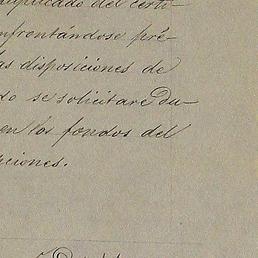 duplicado del certi-
nfrontándose pré-
as disposiciones de
do se solicitare du-
en los fondos del
ciones.